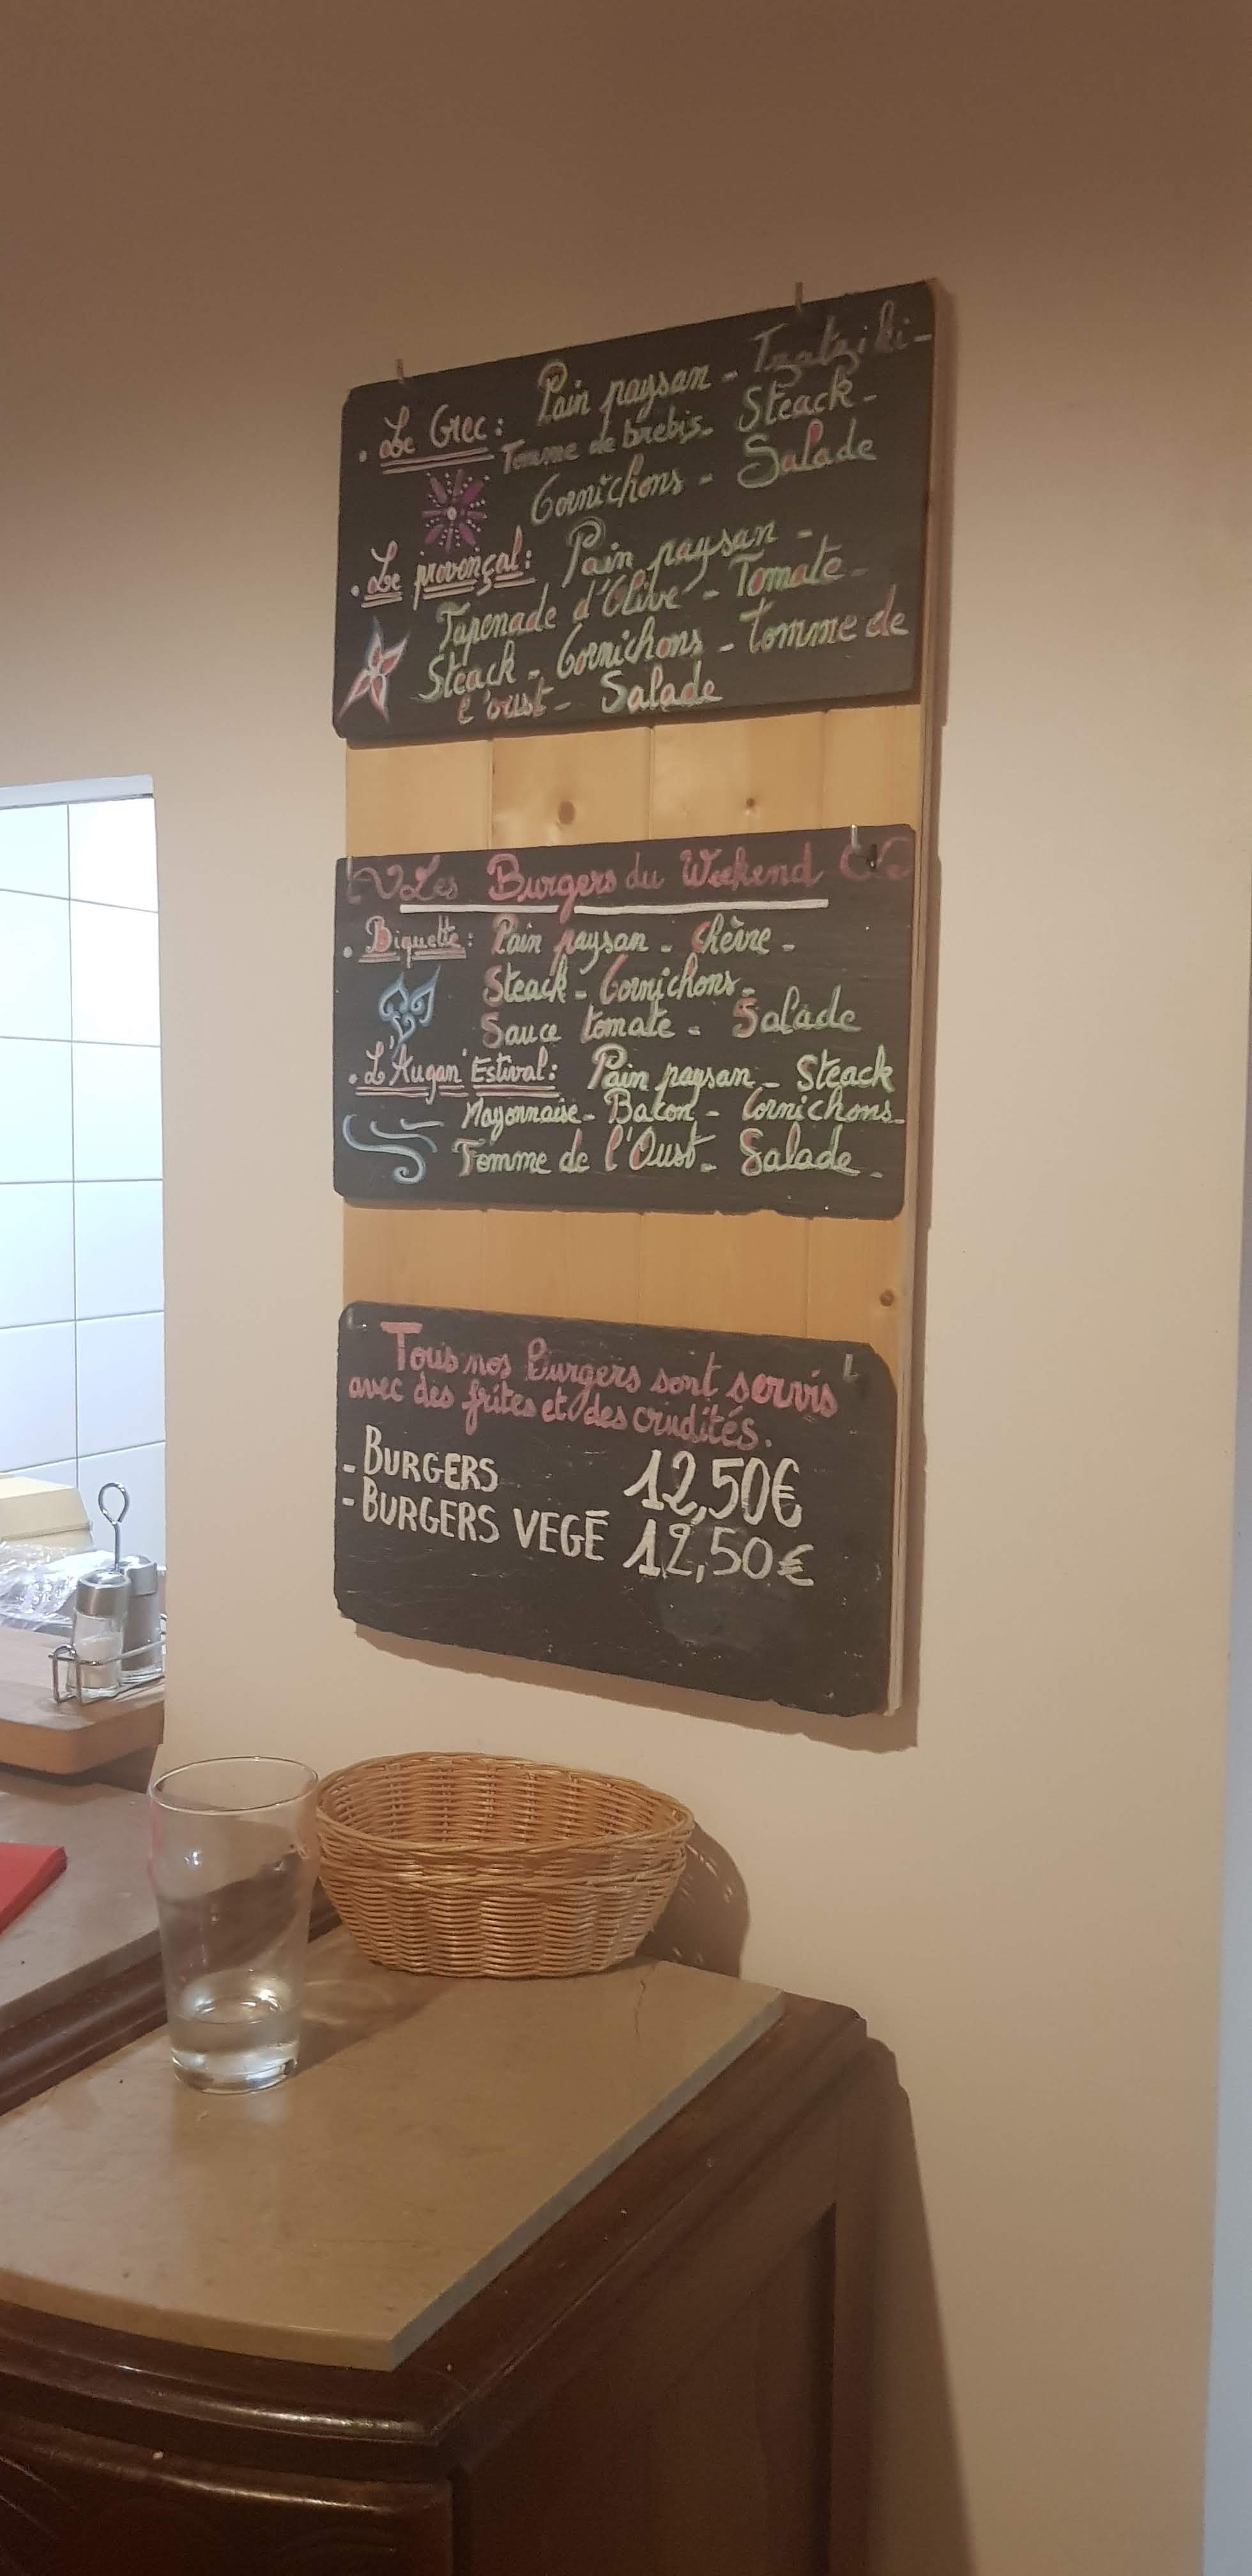 . Le Grec: Pain paysan - Tzatziki -
Tomme de brebis - Steack -
Cornichons - Salade
. Le provençal: Pain paysan -
Tapenade d'Olive - Tomate -
Steack - Cornichons - Tomme de
l'oust - Salade
Les Burgers du Weekend
. Biquette: Pain paysan - Chèvre -
Steack - Cornichons -
Sauce tomate - Salade
. L'Augan'Estival: Pain paysan - Steack
Mayonnaise - Bacon - Cornichons -
Tomme de l'Oust - Salade -
Tous nos Burgers sont servis
avec des frites et des crudités.
- BURGERS 12,50€
- BURGERS VEGÉ 12,50€